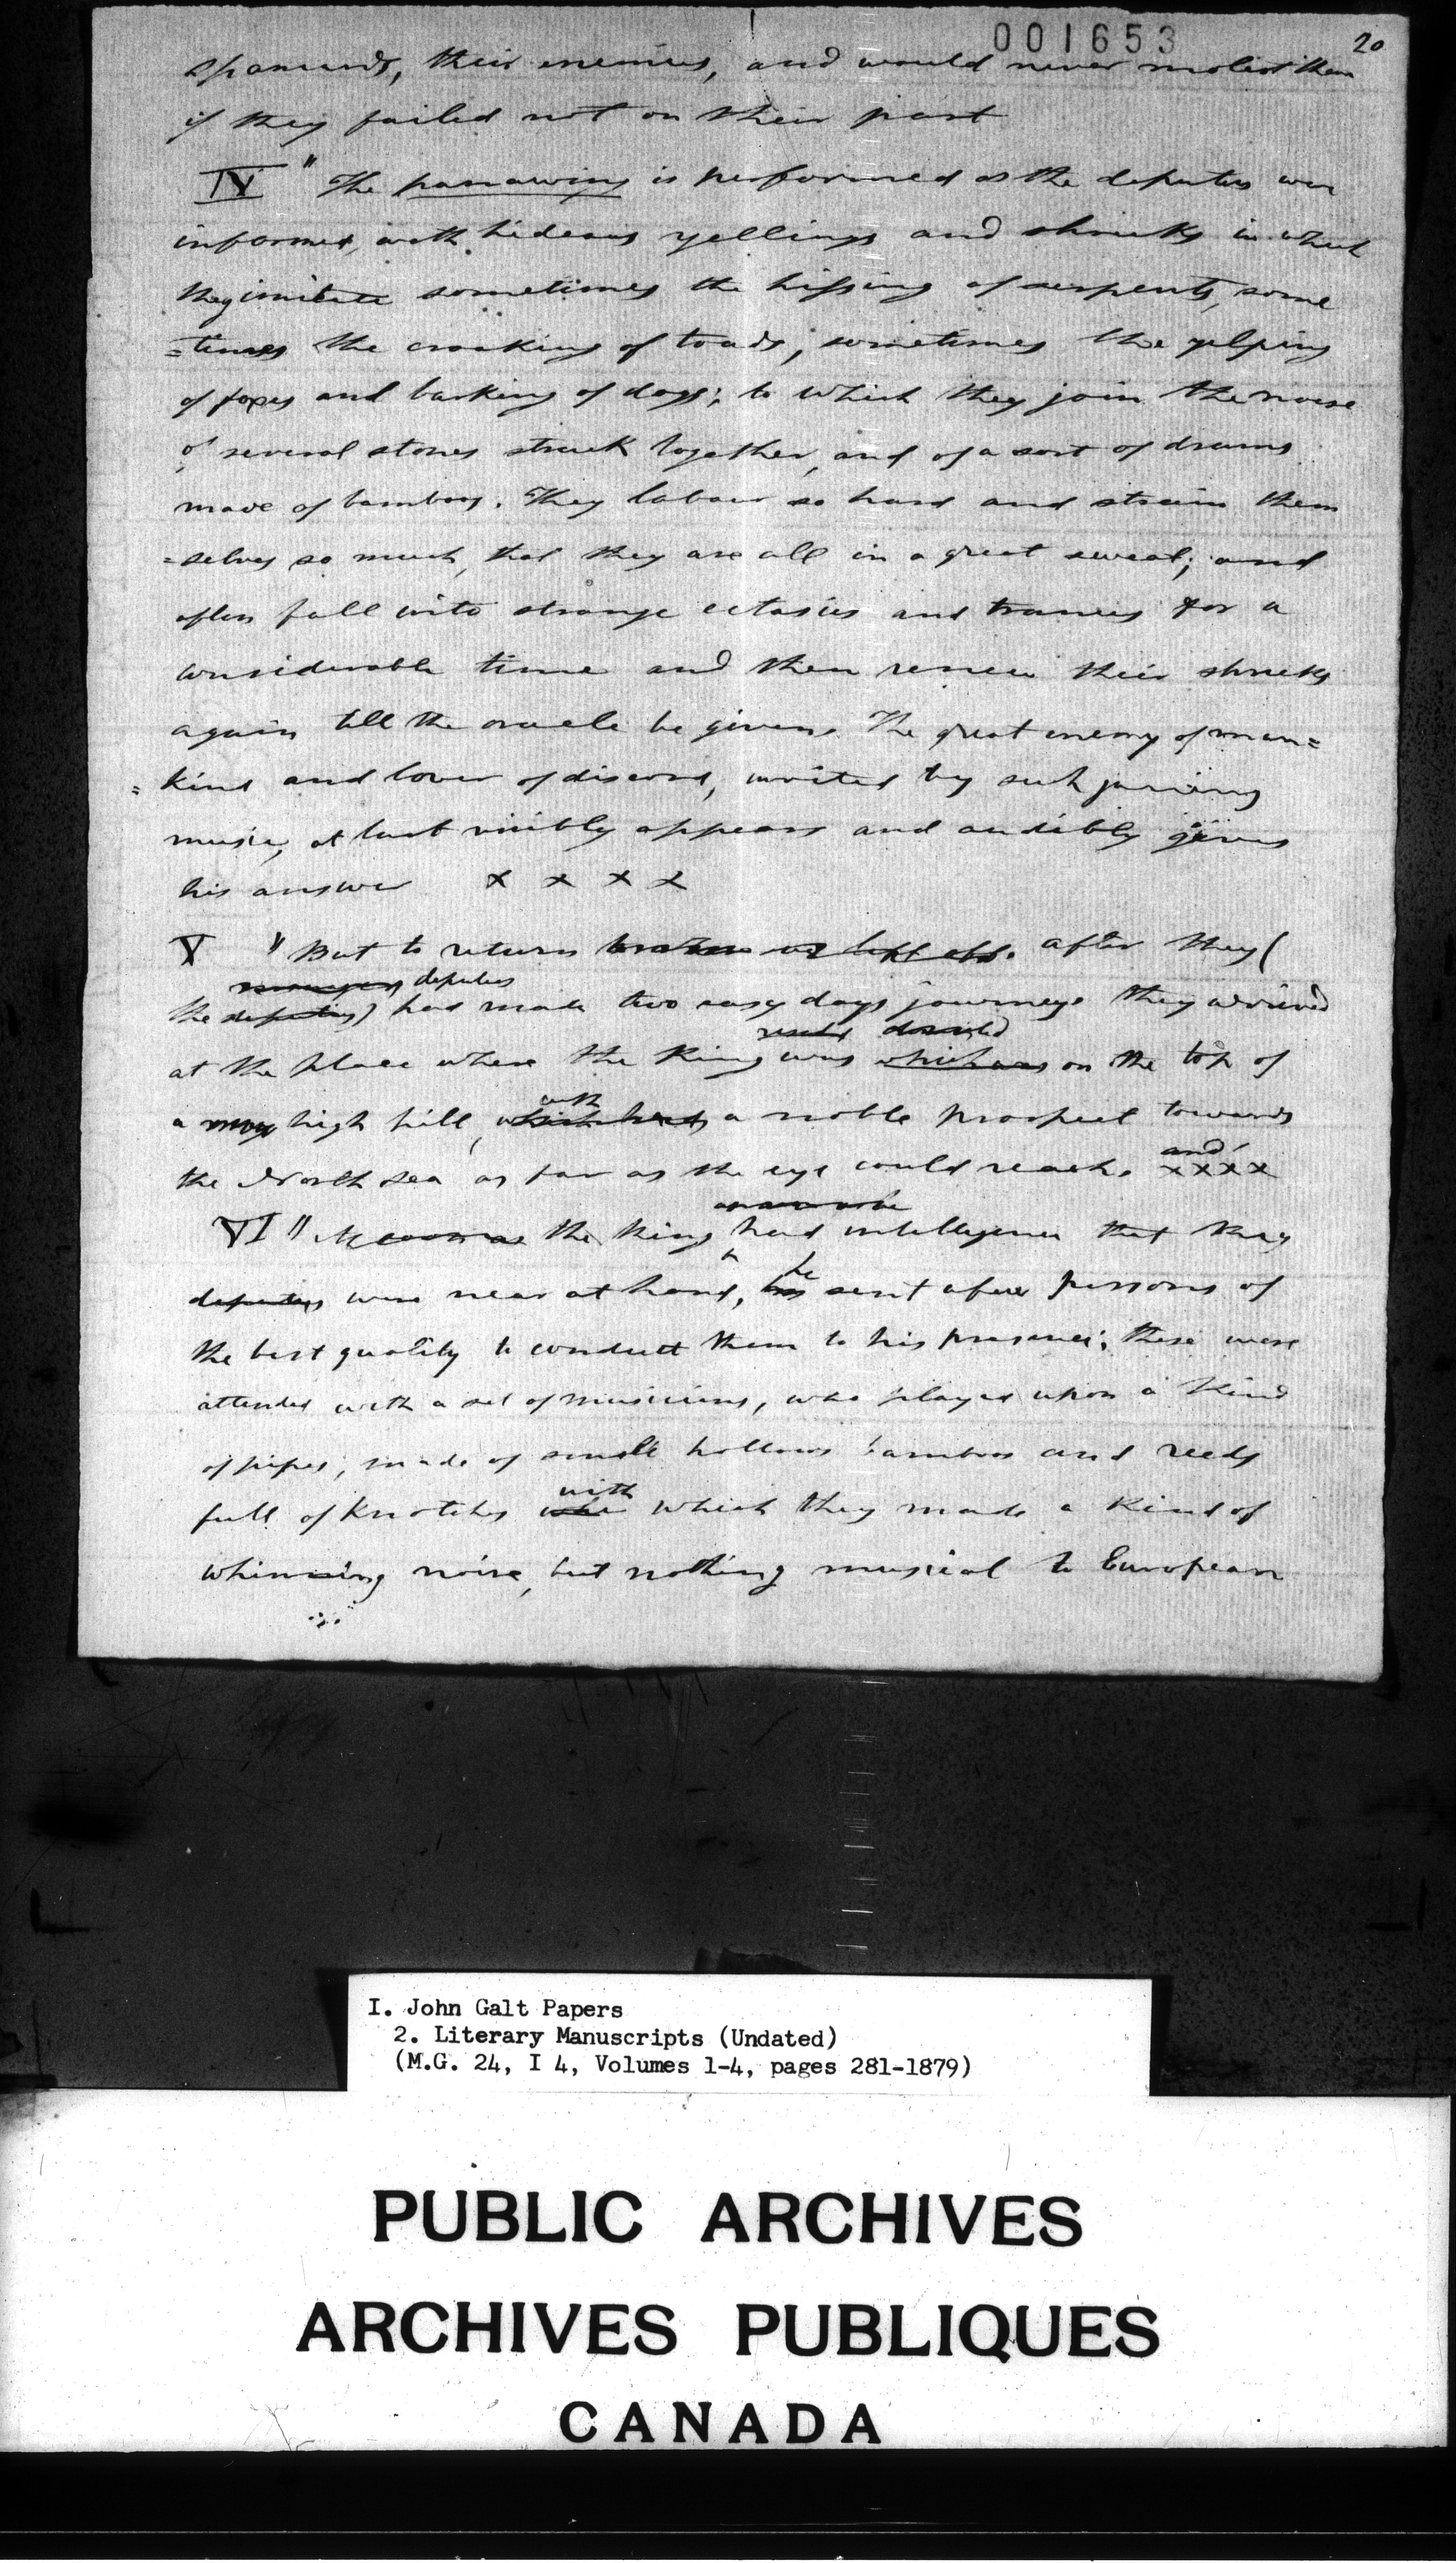 001653
20
spaniards, their enemies, and would never molest them
if they failed not on their part
IV "The pawawing is performed as the deputies were
informed, with hideous yellings and shrieks in which
they imitate sometimes the hissing of serpents, some
=times the croaking of toads; sometimes the yelping
of foxes and barking of dogs; to which they join the noise
of several stones struck together, and of a sort of drums
made of bamboos. They labour so hard and strain them
=selves so much, that they are all in a great sweat; and
often fall into strange extasies and trances for a
considerable time and then renew their shrieks
again till the oracle be given. The great enemy of man=
=kind and lover of discord, invited by such jarring
music, at last visibly appears and audibly gives
his answer x x x x
V "But to return to where we left off. after they (
deputies
the deputies) had made two easy days journeys they arrived
at the place where the King was which was on the top of
with
a very high hill, which has a noble prospect towards
and
the North sea as far as the eye could reach. xxxx
VI " the King had intelligence that they
he
deputies were near at hand, sent a few persons of
the best quality to conduct them to his presence; these were
attended with a set of musicians, who played upon a kind
of pipes, made of small hollow bamboos and reeds
with
full of knotches which they made a kind of
whinning noise, but nothing musical to European
I. John Galt Papers
2. Literary Manuscripts (Undated)
(M.G. 24, I 4, Volumes 1-4, pages 281-1879)
PUBLIC ARCHIVES
ARCHIVES PUBLIQUES
CANADA